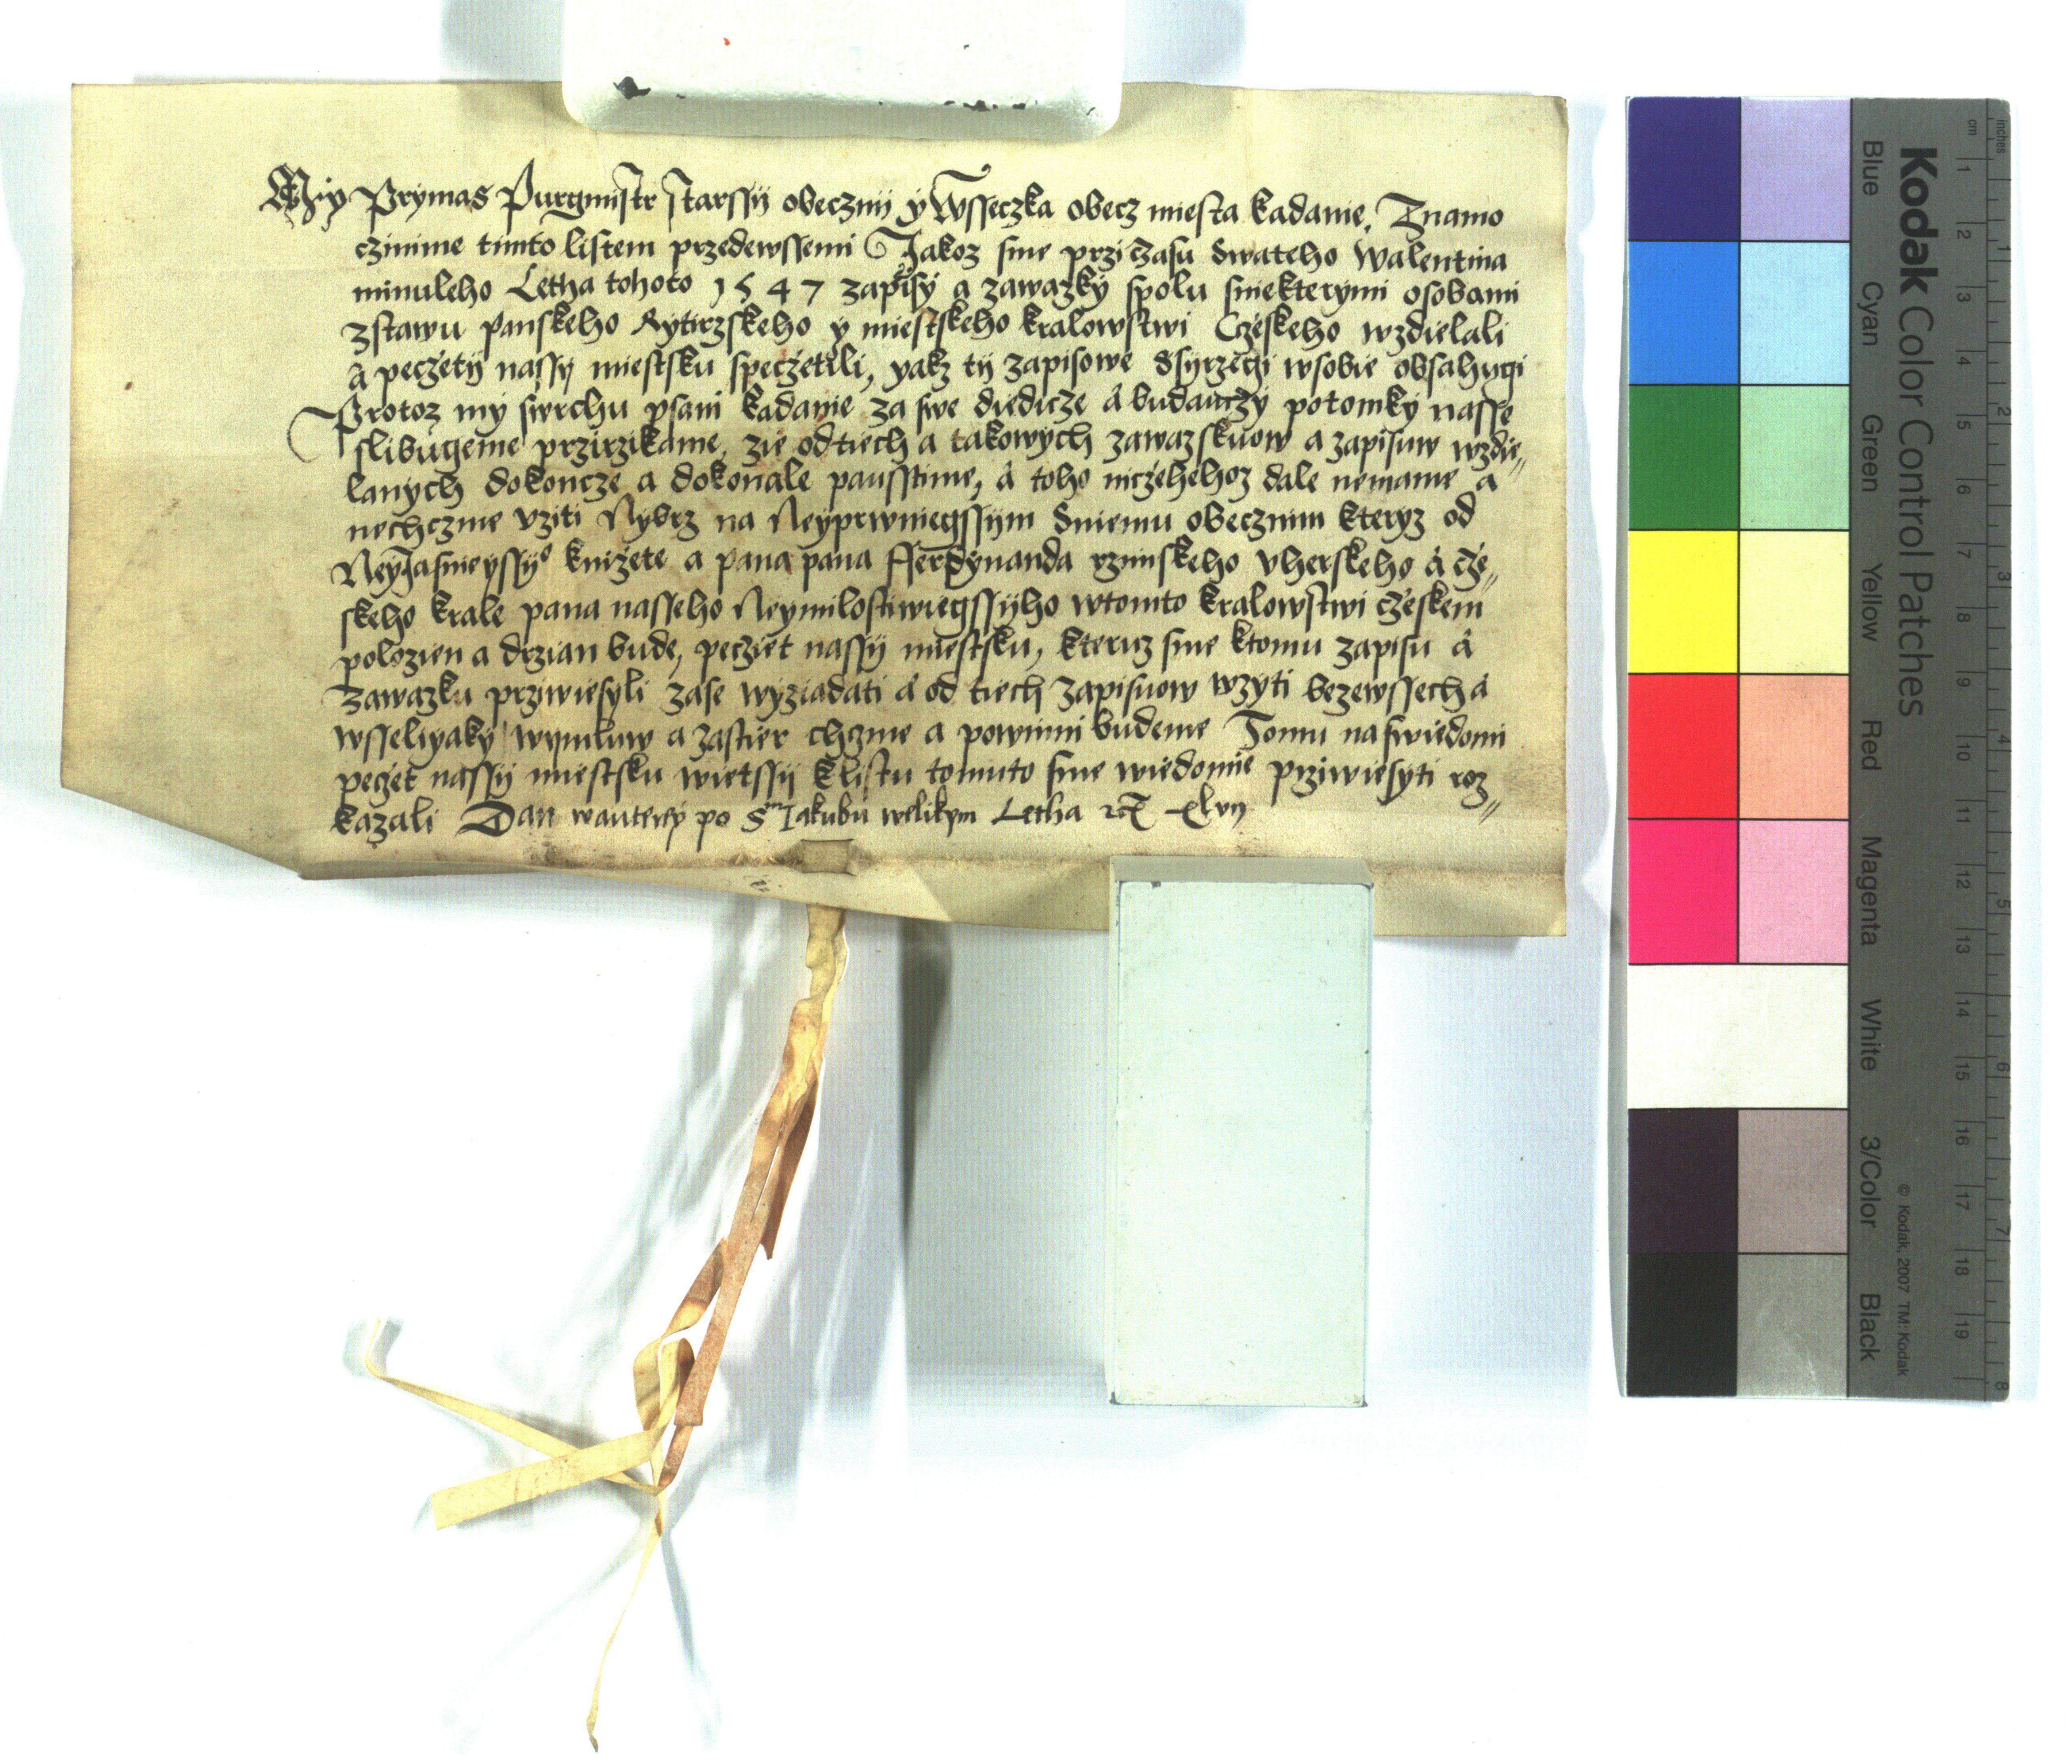 My Prymas Purgmistr starssy obeczny y wsseczka obecz miesta Kadanie, Znamo
czinime timto listem przedewssemi Jakoz sme przi czasu swateho Walentina
minuleho Letha tohoto 1547 zapisy a zawazky spolu sniekterymi osobami
zstawu panskeho Rytirzskeho y miestskeho kralowstwi Czeskeho wzdielali
a peczety nassy miestsku speczetili, yakz ty zapisowe ssyrzegi wsobie obsahugi
Protoz my swrchu psani Kadanie za swe diedicze a buduczy potomky nasse
slibugeme przirzikame, zie odtiech a takowych zawazskuow a zapisuw wzdie„
lanych dokoncze a dokonale pausstime, a toho niczehehoz dale nemame a
nechczme vziti Nybrz na Neyprwniegssym Sniemu obecznim kteryz od
Neyjasnieyssyo knizete a pana pana Fferdynanda rzimskeho Vherskeho a cze„
skeho krale pana nasseho Neymilostiwiegssyho wtomto kralowstwi czeskem
polozien a drzian bude, pecziet nassy miestsku, kteruz sme ktomu zapisu a
zawazku przwiesyli zase wyziadati a od tiech zapisuow wzyti bezewssech a
wsseliyaky wymluw a zastier chczme a powinni budeme Tomu naswiedomi
peczet nassy miestsku wietssy klistu tomuto sme wiedomie prziwiesyti roz„
kazali Dan wautery po Sm Jakubu welikym Letha xlvii
Kodak Color Control Patches
Blue Cyan Green Yellow Red Magenta White 3/Color Black
© Kodak, 2007 TM: Kodak
inches 1 2 3 4 5 6 7 8
cm 1 2 3 4 5 6 7 8 9 10 11 12 13 14 15 16 17 18 19